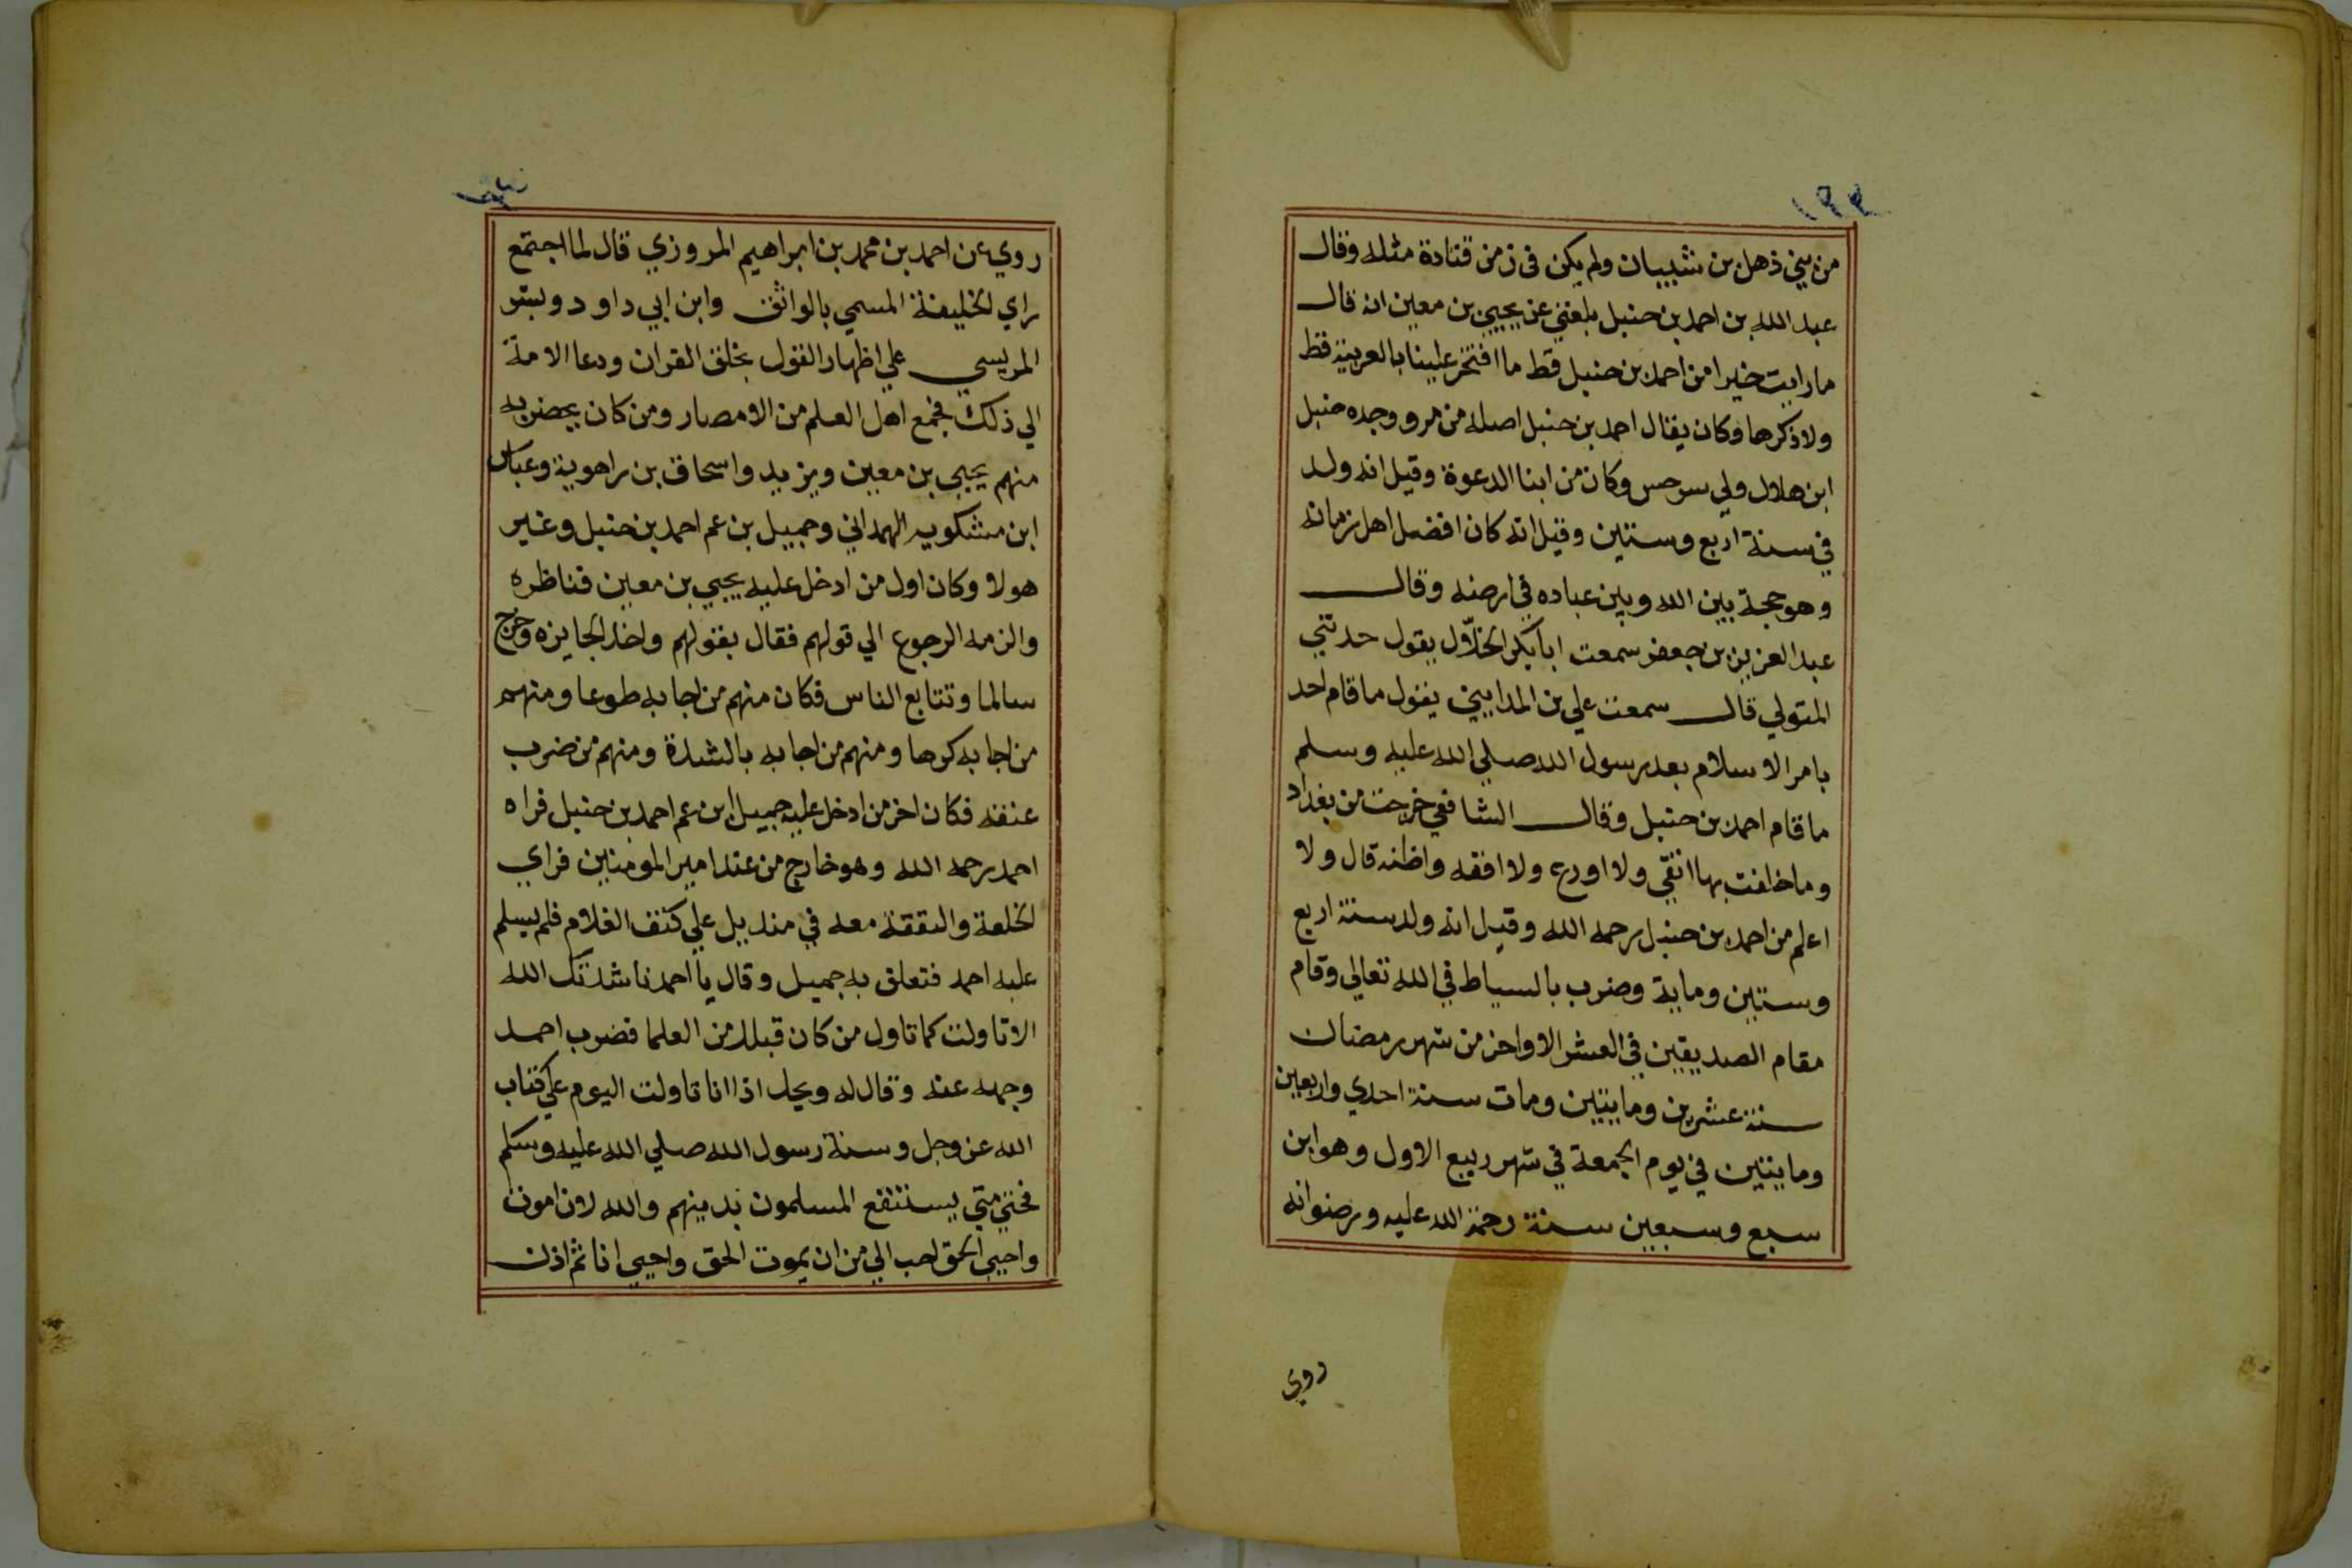 ١٩٣
من بني ذهل بن شيبان ولم يكن في زمن قتادة مثله وقال
عبد الله بن احمد بن حنبل بلغني عن يحيي بن معين انه قال
ما رايت خيرا من احمد بن حنبل قط ما افتخر علينا بالعربية قط
ولا ذكرها وكان يقال احمد بن حنبل اصله من مرو وجده حنبل
ابن هلال ولي سرخس وكان من ابنا الدعوة وقيل انه ولد
في سنة اربع وستين وقيل انه كان افضل اهل زمانه
وهو حجة بين الله وبين عباده في ارضه وقال
عبد العزيز بن جعفر سمعت ابا بكر الخلّال يقول حدثني
المتولي قال سمعت علي بن المدايني يقول ما قام احد
بامر الاسلام بعد رسول الله صلي الله عليه وسلم
ما قام احمد بن حنبل وقال الشافعي خرجت من بغداد
وما خلفت بها اتقي ولا اورع ولا افقه واظنه قال ولا
اعلم من احمد بن حنبل رحمه الله وقيل انه ولد سنة اربع
وستين وماية وضرب بالسياط في الله تعالي وقام
مقام الصديقين في العشر الاواخر من شهر رمضان
سنة عشرين ومايتين ومات سنة احدي واربعين
ومايتين في يوم الجمعة في شهر ربيع الاول وهو ابن
سبع وسبعين سنة رحمة الله عليه ورضوانه
روي
روي عن احمد بن محمد بن ابراهيم المروزي قال لما اجتمع
راي الخليفة المسمي بالواثق وابن ابي داود وبشر
المريسي علي اظهار القول بخلق القران ودعا الامة
الي ذلك فجمع اهل العلم من الامصار ومن كان بحضرته
منهم يحيي بن معين ويزيد واسحاق بن راهوية وعباس
ابن مشكويه الهمداني وجميل بن عم احمد بن حنبل وغير
هولا وكان اول من ادخل عليه يحيي بن معين فناظره
والزمه الرجوع الي قولهم فقال بقولهم واخذ الجايزه وخرج
سالما وتتابع الناس فكان منهم من اجابه طوعا ومنهم
من اجابه كرها ومنهم من اجابه بالشدة ومنهم من ضرب
عنقه فكان اخر من ادخل عليه جميل ابن عم احمد بن حنبل فراه
احمد رحمه الله وهو خارج من عند امير المومنين فراي
الخلعة والنفقة معه في منديل علي كتف الغلام فلم يسلم
عليه احمد فتعلق به جميل وقال يا احمد ناشدتك الله
الا تاولت كما تاول من كان قبلك من العلما فضرب احمد
وجهه عنه وقال له ويحك اذا انا تاولت اليوم علي كتاب
الله عز وجل وسنة رسول الله صلي الله عليه وسلم
فحتي متي يستنفع المسلمون بدينهم والله لان اموت
واحيي الحق احب الي من ان يموت الحق واحيي انا ثم اذن